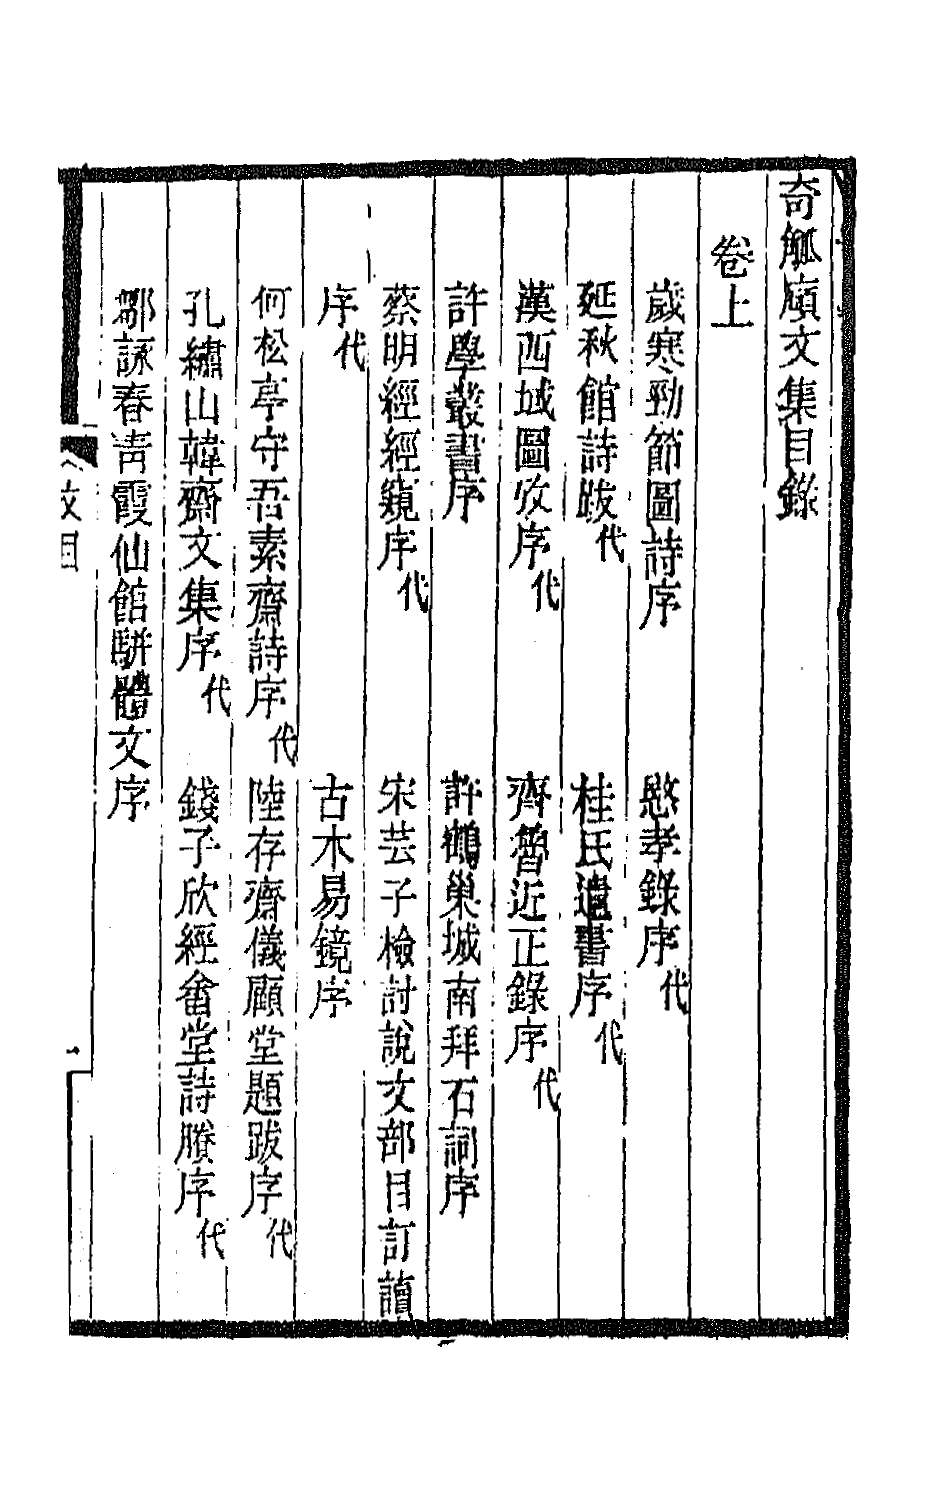 奇觚廎文集目錄
卷上
歲寒勁節圖詩序　愍孝錄序代
延秋館詩跋代　桂氏遺書序代
漢西域圖攷序代　齊魯近正錄序代
許學叢書序　許鶴巢城南拜石詞序
蔡明經經窺序代　宋芸子檢討說文部目訂讀
序代　古木易鏡序
何松亭守吾素齋詩序代　陸存齋儀顧堂題跋序代
孔繡山韓齋文集序代　錢子欣經畬堂詩賸序代
鄒詠春青霞仙館駢體文序
文目